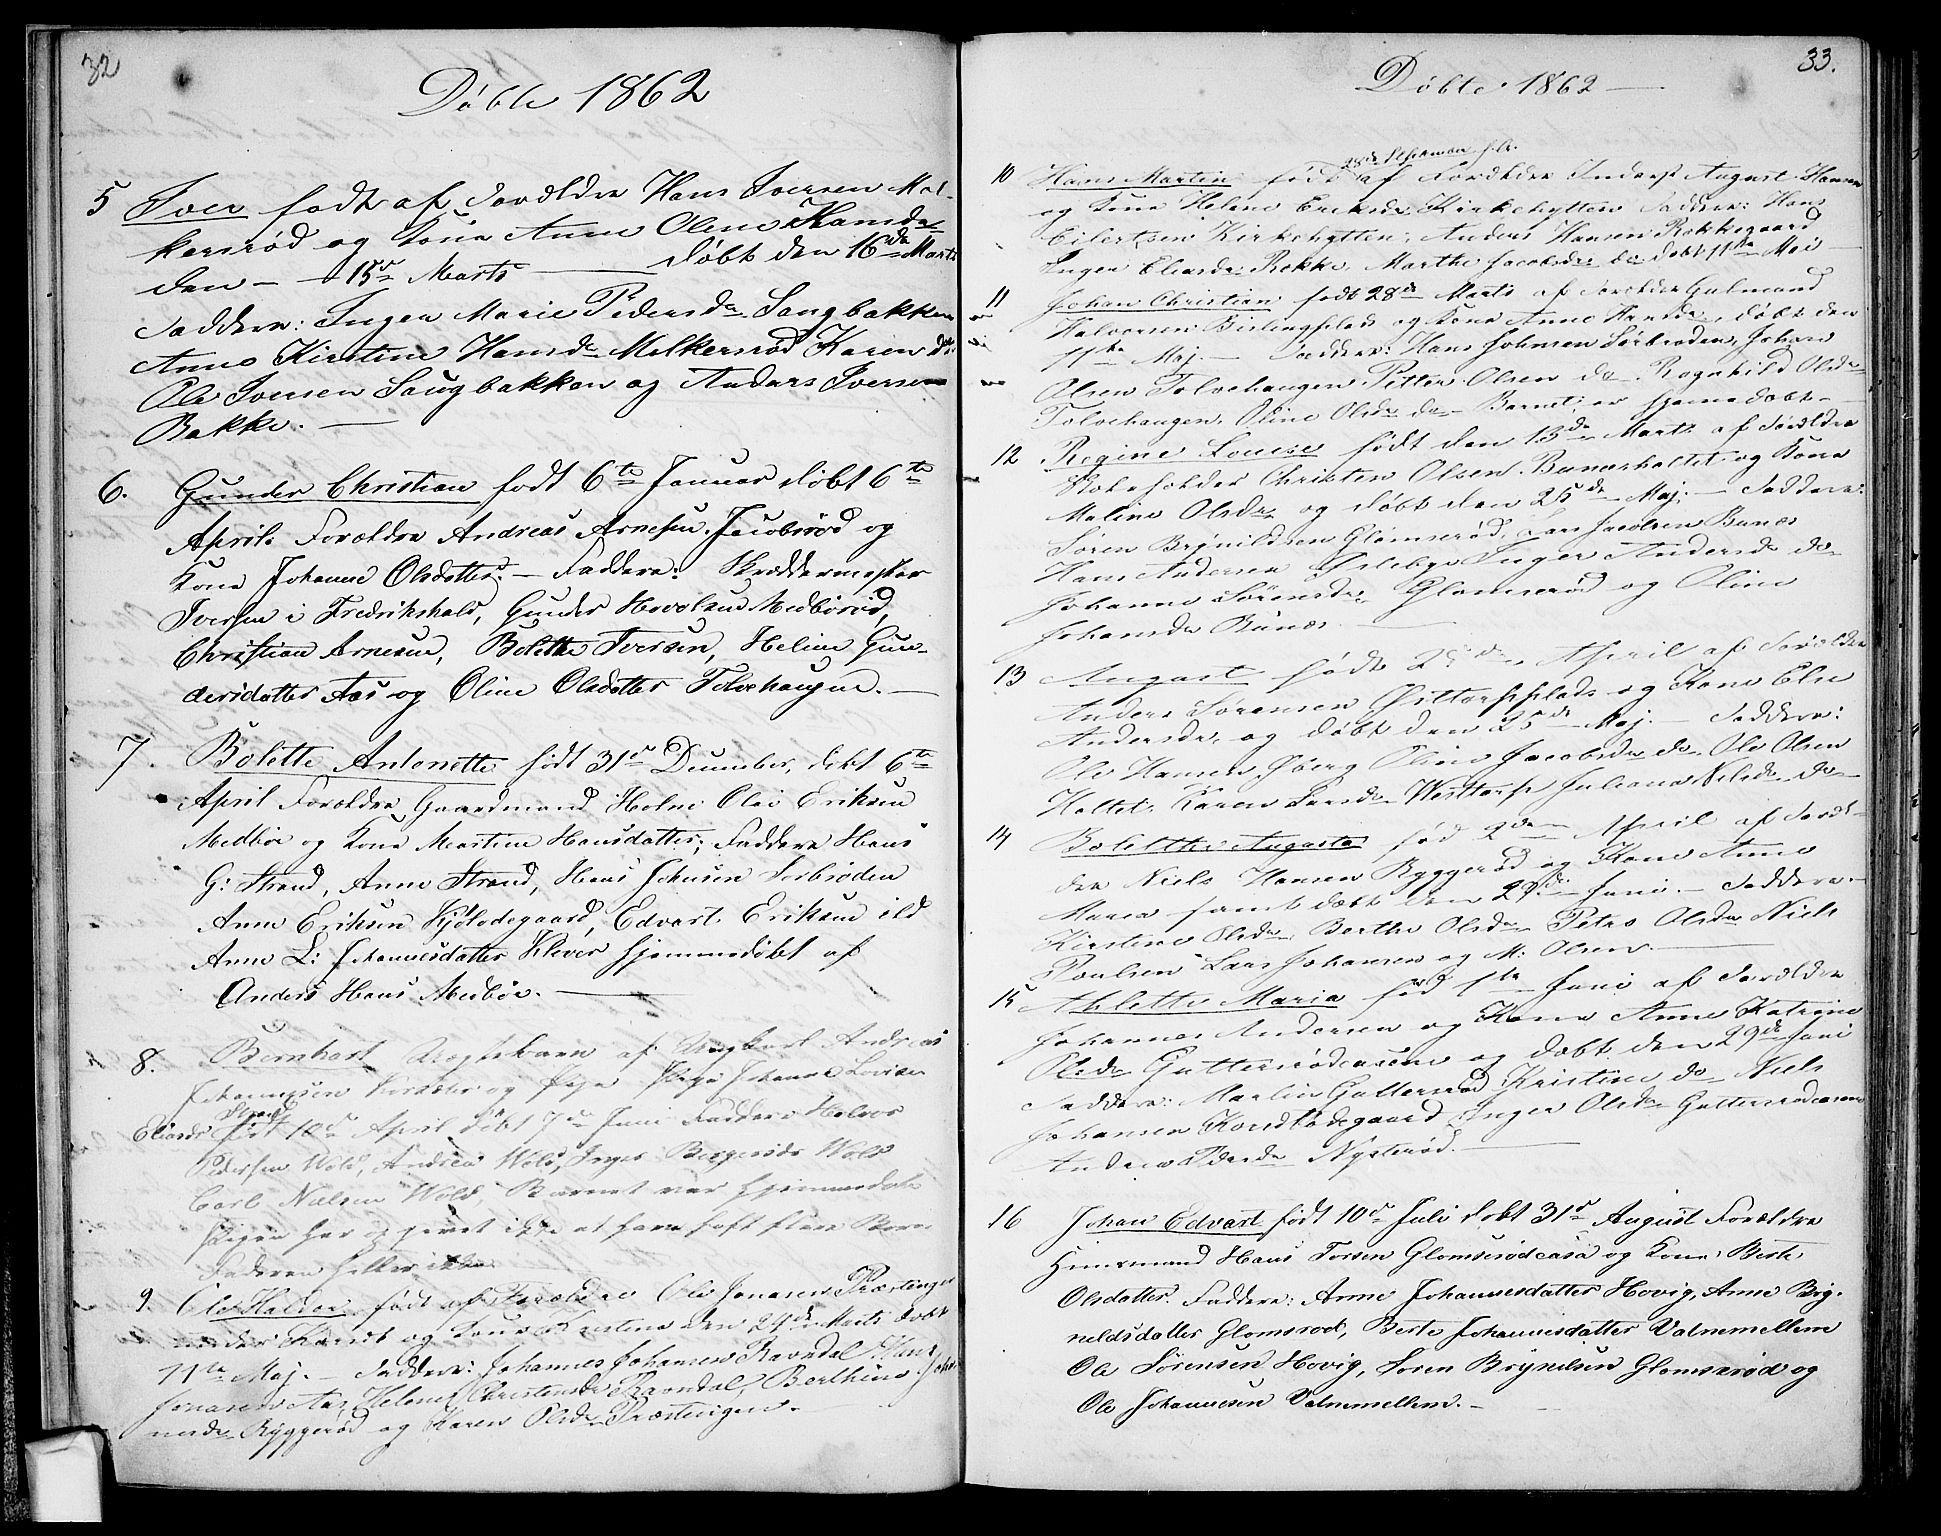 32
Döbte 1862
5 Iver født af Forældre Hans Iversen Mel-
kersrød og Kone Anne Olene Hansdr
den - 15de Marts - døbt den 16de Marts
Faddere: Inger Marie Pedersdr Saugbakken
Anne Kirstine Hansdr Melkersrød Karen do:
Ole Iversen Saugbakken og Anders Iversen
Bakke.
6. Gunder Christian født 6te Januar døbt 6te
April. Forældre Andreas Arnesen Jacobsrød og
Kone Johanne Olsdatter. - Faddere: Skræddermester
Iversen i Fredrikshald, Gunder Hovelsen Medbørød,
Christian Arnesen, Bolette Iversen, Heline Gun-
dersdatter Aas og Oline Olsdatter Tolvehaugen.
7. Bolette Antonette født 31te December, døbt 6te
April Forældre Gaardmand Holm Olai Eriksen
Medbøe og Kone Martine Hansdatter; Faddere Hans
G: Strand, Anne Strand, Hans Johnsen Sørbrøden
Anne Eriksen Kjølodegaard, Edvart Eriksen ibd
Anne L: Johannesdatter Klever hjemmedøbt af
Anders Hans Medbøe.
8. Bernhart Uægtebarn af Ungkarl Andreas
Johannessen og Pige Johanne Lovise
Eliasdr Strand født 10de April døbt 7de Juni Faddere Halvor
Pedersen Wold, Andrea Wold, Inger Bergersdr Wold
Carl Nielsen Wold, Barnet var hjemmedøbt
Pigen har opgivet ikke at have haft flere Børn
Faderen heller ikke
9. Ole Halvor født af Forældre Ole Jonasen Præstengen
under og Kone Kirstine den 24de Marts døbt
11te Maj. - Faddere: Johannes Johansen Ravndal, Hans
Jonasen Aas, Helene Christensdr Ravndal, Berthine Johan-
nesdr Ryggerød og Karen Olsdr Præstengen.
33.
Döbte 1862
28de
10 Hans Martin født af Forældre Inderst August Hansen
og Kone Helene Eriksdr Kirkehytten Faddere: Hans
Eilertsen Kirkehytten, Anders Hansen Rokkegaard
Inger Eliasdr Rokke, Marthe Jacobsdr do døbt 11te Mai
11 Johan Christian født 28de Marts af Forældre Gulmand
Halvorsen Bislingsplads og Kone Anne Hansdr, døbt den
11te Maj. - Faddere: Hans Johnsen Sørbrøden, Johan
Olsen Tolvehaugen Petter Olsen do Ragnhild Olsdr
Tolvehaugen, Oline Olsdr do - Barnet er hjemedøbt -
12 Regine Louise født den 13de Marts af Forældre
Christen Olsen Bunæsholtet og Kone
Maline Olsdr og døbt den 25de Maj. - Faddere:
Søren Brynildsen Glomserød, Lars Jacobsen Bunæs
Hans Andersen Inger Andersdr do
Johanne Sørensdr Glomserød og Oline
Johansdr Bunæs.
13 August født 25de April af Forældre
Anders Sørensen Vesttorpsplads og Kone Else
Andersdr, og døbt den 25de Maj. - Faddere:
Ole Hansen Oline Jacobsdr do Ole Olsen
Holtet, Karen Larsdr Westtorp Juliana Nilsdr do
14 Bolethe Augusta fød 2den April af Foræl-
dre Niels Hansen Ryggerød og Kone Anne
Maria samt døbt den 29de Juni. - Faddere
Kirstine Olsdr, Berthe Olsdr Petra Olsdr Niels
Poulsen Lars Johansen og M: Olsen.
15 Athlette Maria fød 1te Juni af Forældre
Johannes Andersen og Kone Anne Katrine
Olsdr Guttersrødaasene og døbt den 29de Juni
Faddere: Martin Guttersrød Kristine do Niels
Johansen Kordtødegaard Inger Olsdr Guttersrødaasene
Andrea Pedersdr Nysterød.
16 Johan Edvart født 10de Juli døbt 31te August Forældre
Huusmand Hans Torsen Glomserødcasa og Kone Berte
Olsdatter. Faddere: Anne Johannesdatter Hovig, Anne Bry-
neldsdatter Glomsrød, Berte Johannesdatter Valnemellem
Ole Sørensen Hovig, Søren Brynelsen Glomserød og
Ole Johannesen Valnemellem.